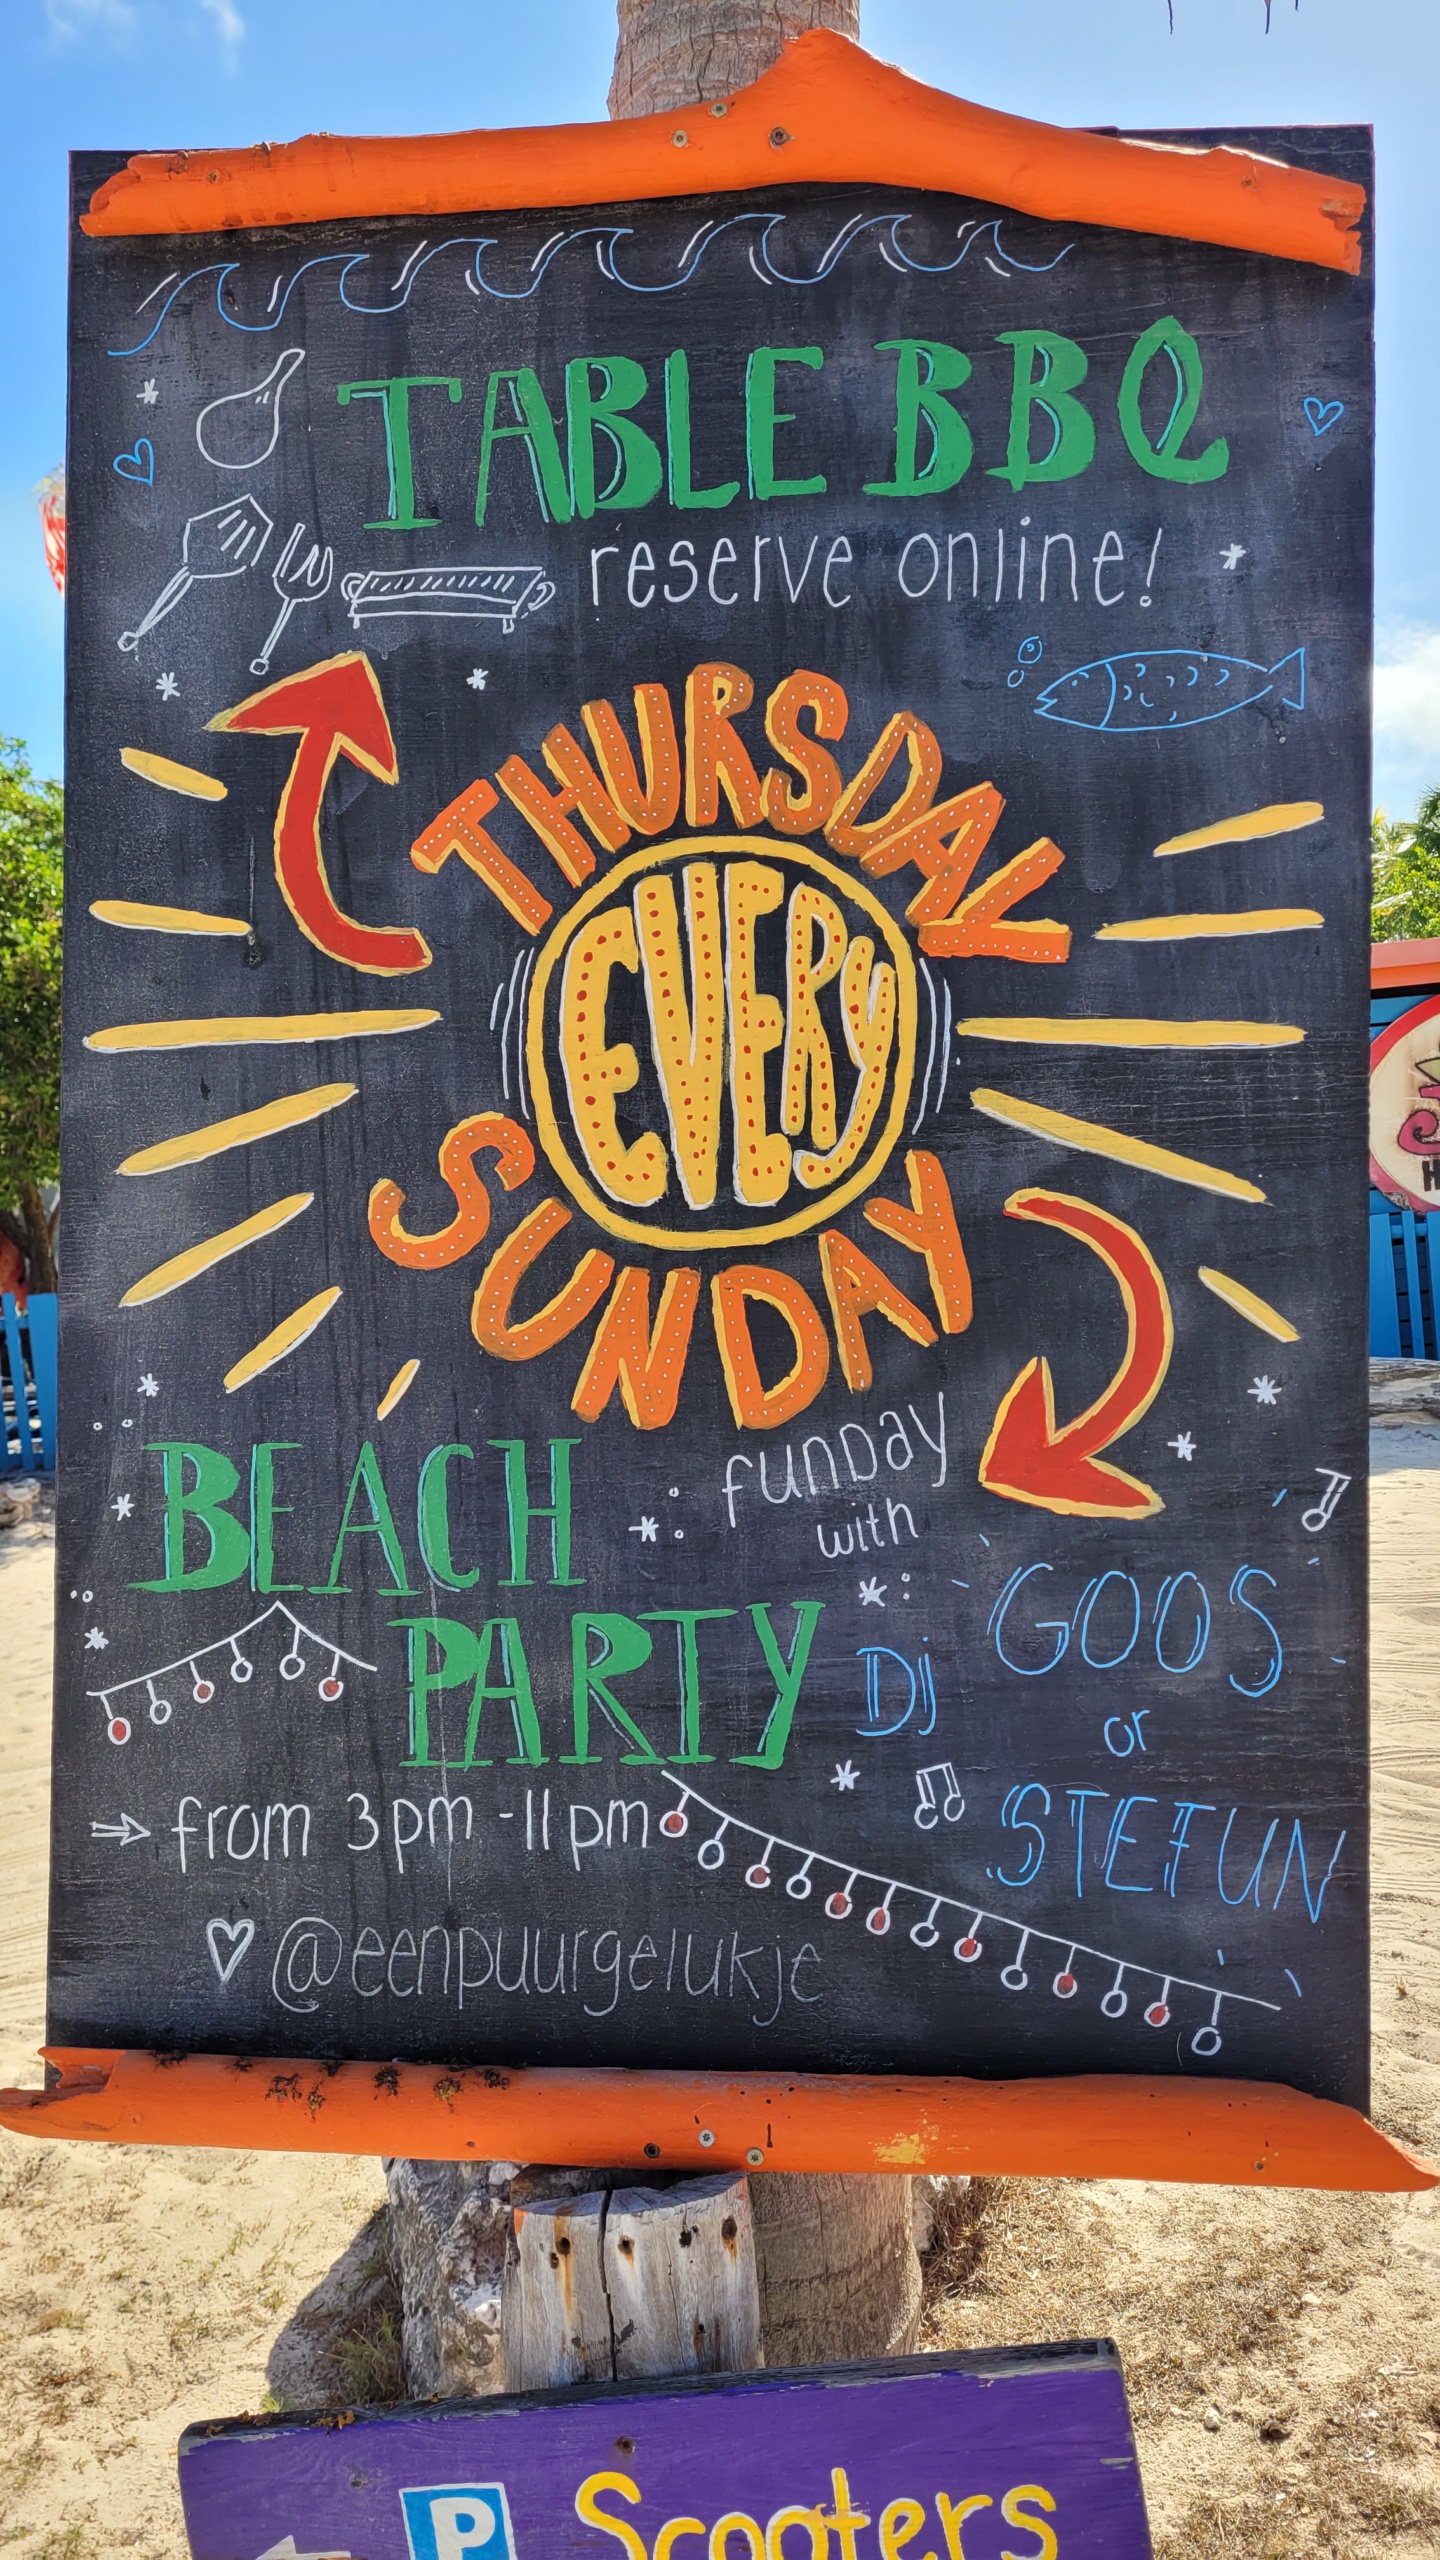 TABLE BBQ
reserve online!
THURSDAY
EVERY
SUNDAY
BEACH
PARTY
funday
with
Dj GOOS
or
STEFUN
from 3pm - 11pm
@eenpuurgelukje
P Scooters